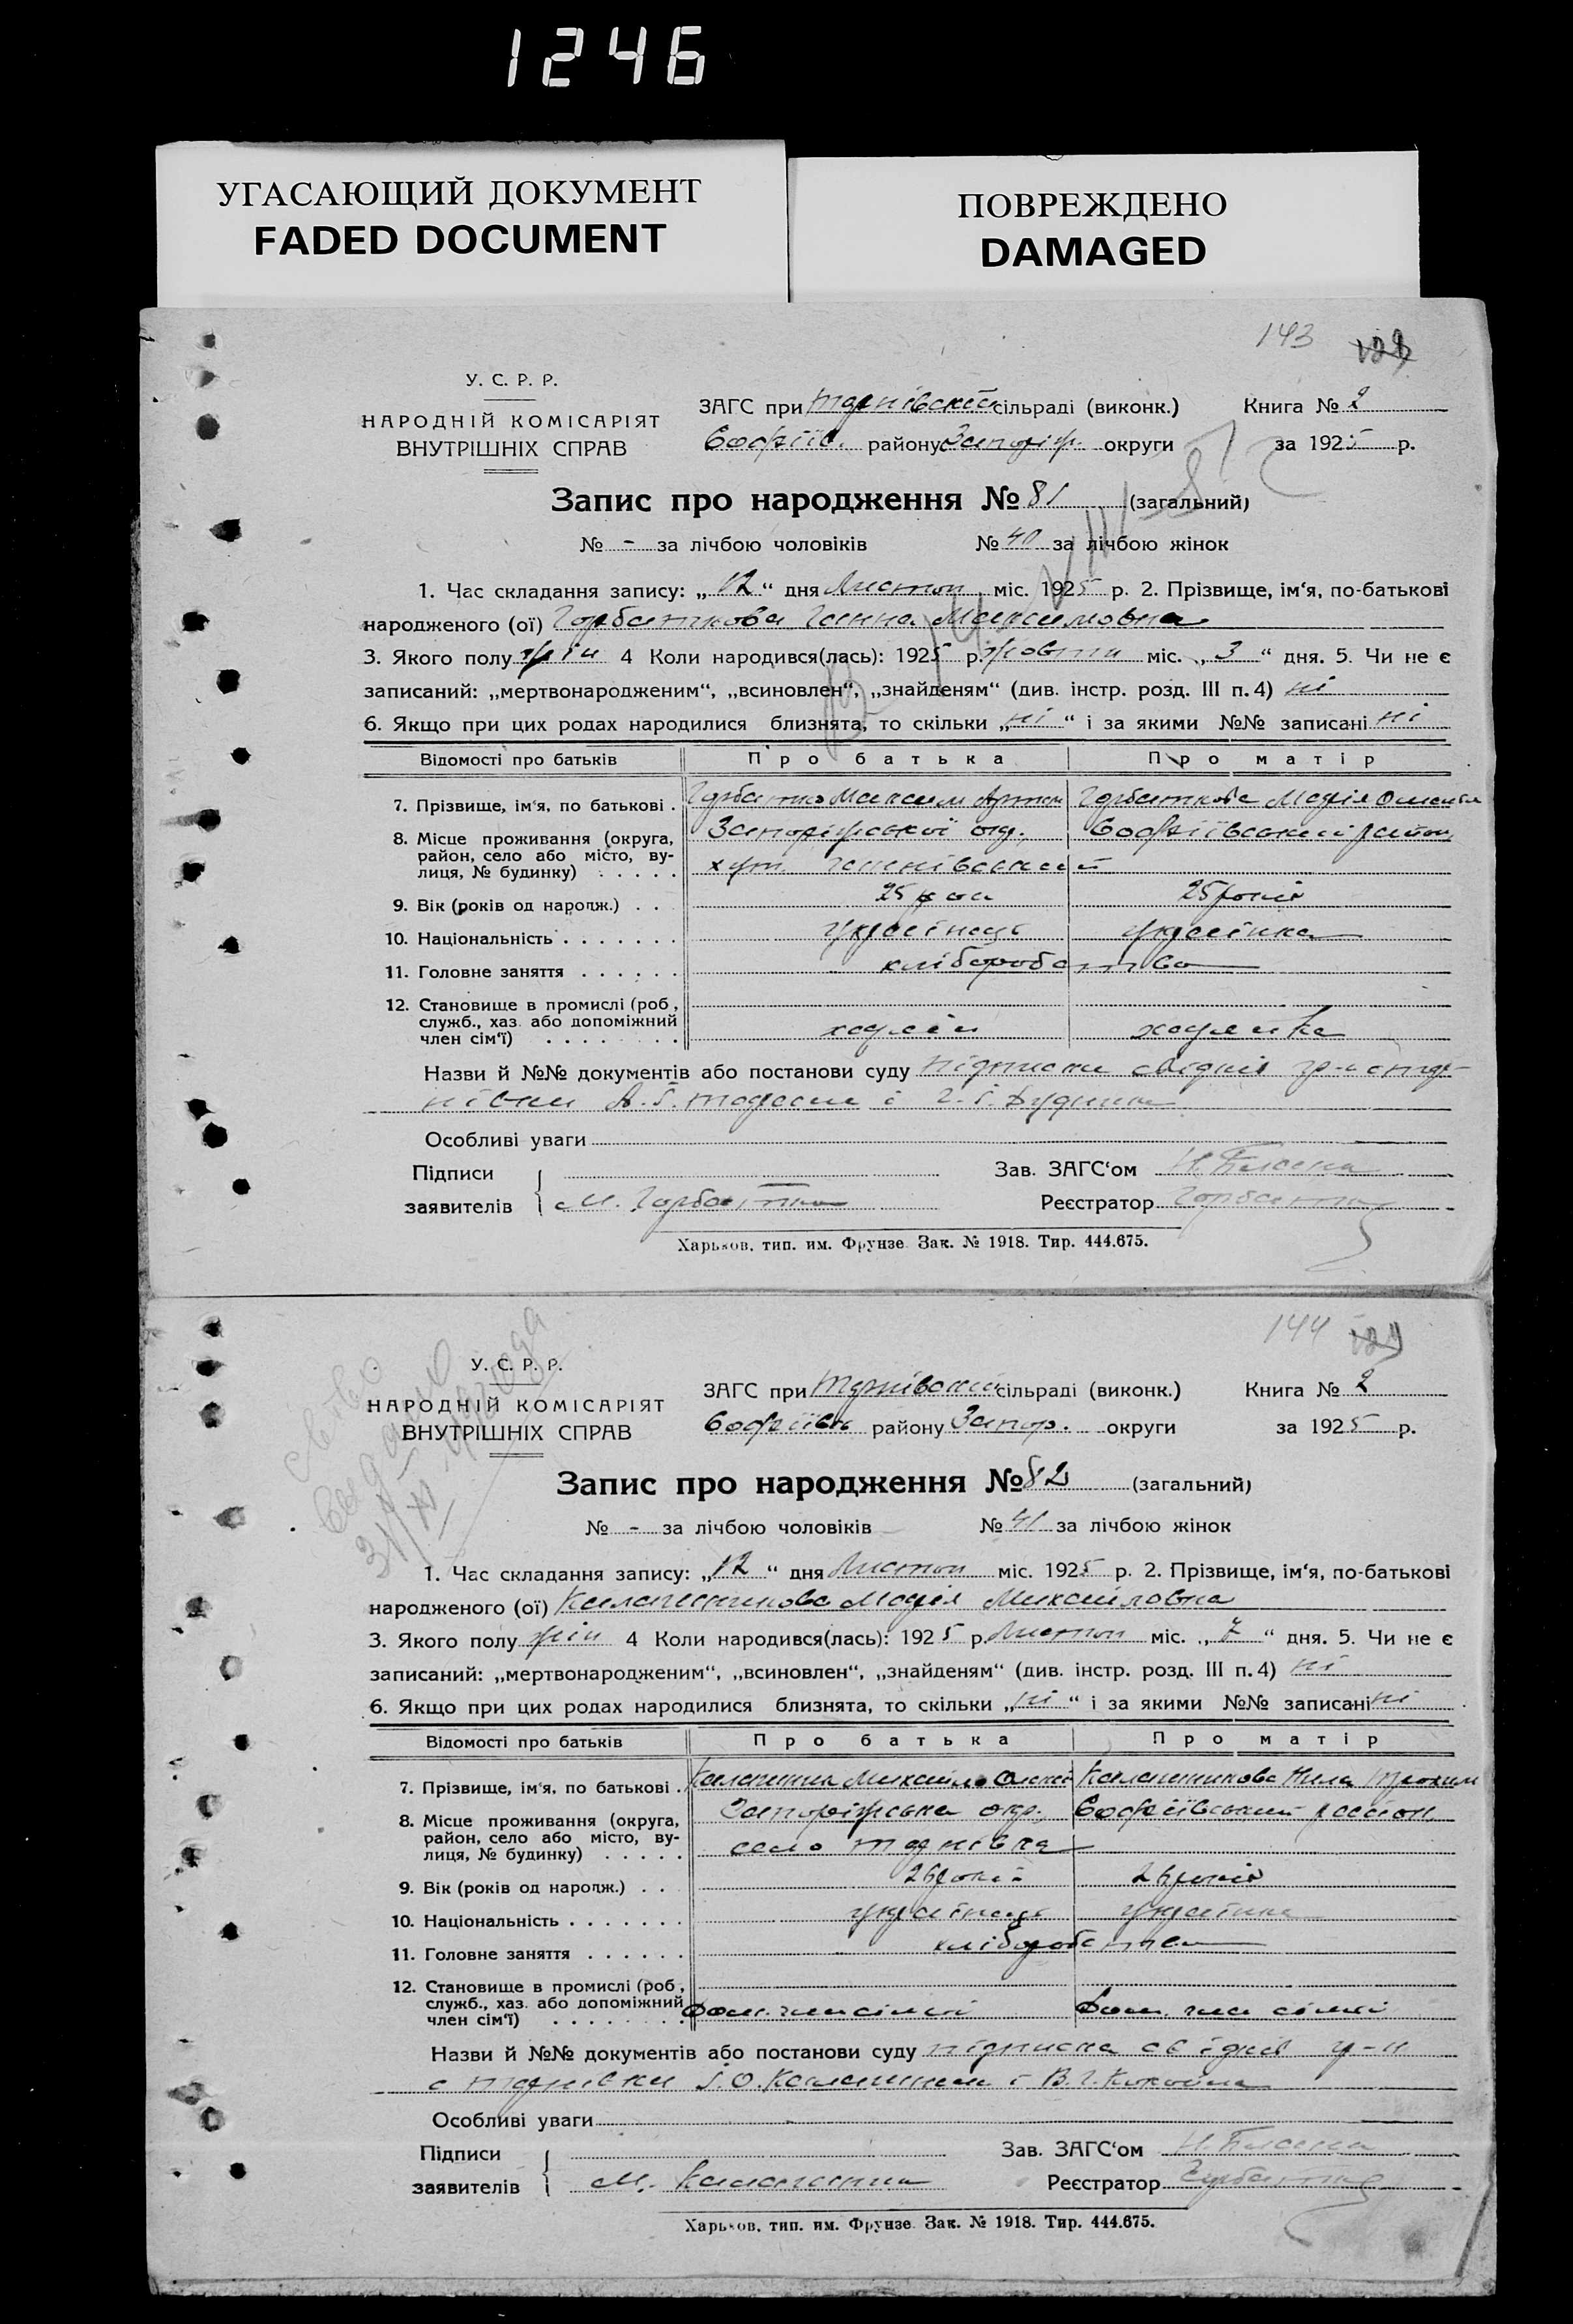 1246
УГАСАЮЩИЙ ДОКУМЕНТ
FADED DOCUMENT
ПОВРЕЖДЕНО
DAMAGED
143
У. С. Р. Р.
НАРОДНІЙ КОМІСАРІЯТ
ВНУТРІШНІХ СПРАВ
ЗАГС при Тернівській сільраді (виконк.) Книга № 2
Софіїв. району Запоріж. округи за 1925 р.
Запис про народження № 81 (загальний)
№ - за лічбою чоловіків № 40 за лічбою жінок
1. Час складання запису: „12“ дня Листоп міс. 1925 р. 2. Прізвище, ім‘я, по-батькові
народженого (ої) Горбаткова Ганна Максимовна
3. Якого полу жін 4 Коли народився(лась): 1925 р. жовтн міс. „3“ дня. 5. Чи не є
записаний: „мертвонародженим“, „всиновлен“, „знайденям“ (див. інстр. розд. III п. 4) ні
6. Якщо при цих родах народилися близнята, то скільки „ні“ і за якими №№ записані ні
Відомості про батьків Про батька Про матір
7. Прізвище, ім‘я, по батькові . Горбатко Максим Артем Горбаткова Марія
8. Місце проживання (округа, район, село або місто, вулиця, № будинку) . . . . . Запоріжської окр., Софіївський район,
хут. Ганнівський
9. Вік (років од нарождж.) . . 25 рок 25 років
10. Національність . . . . . . . українець українка
11. Головне заняття . . . . . . хліборобство
12. Становище в промислі (роб, служб., хаз. або допоміжний член сім‘ї) . . . . . . . . хазяїн хазяйка
Назви й №№ документів або постанови суду підписки свідків гр-н
А. Г. і Г. Г.
Особливі уваги
Підписи заявителів М. Горбатко
Зав. ЗАГС‘ом Н.
Реєстратор Горбатко
Харьков, тип. им. Фрунзе. Зак. № 1918. Тир. 444.675.
144
У. С. Р. Р.
НАРОДНІЙ КОМІСАРІЯТ
ВНУТРІШНІХ СПРАВ
ЗАГС при Тернівській сільраді (виконк.) Книга № 2
Софіївськ району Запор. округи за 1925 р.
Запис про народження № 82 (загальний)
№ - за лічбою чоловіків № 41 за лічбою жінок
1. Час складання запису: „12“ дня Листоп міс. 1925 р. 2. Прізвище, ім‘я, по-батькові
народженого (ої) Калашникова Марія Михайловна
3. Якого полу жін 4 Коли народився(лась): 1925 р. Листоп міс. „7“ дня. 5. Чи не є
записаний: „мертвонародженим“, „всиновлен“, „знайденям“ (див. інстр. розд. III п. 4) ні
6. Якщо при цих родах народилися близнята, то скільки „ні“ і за якими №№ записані ні
Відомості про батьків Про батька Про матір
7. Прізвище, ім‘я, по батькові . Михайло Олексі Калашникова Трохим
8. Місце проживання (округа, район, село або місто, вулиця, № будинку) . . . . . Запоріжська окр., Софіївський район,
село Тернівка
9. Вік (років од нарождж.) . . 26 років 26 років
10. Національність . . . . . . . українець українка
11. Головне заняття . . . . . . хліборобство
12. Становище в промислі (роб, служб., хаз. або допоміжний член сім‘ї) . . . . . . . . Доп. член сімьї Доп. член сімьї
Назви й №№ документів або постанови суду підписка свідків гр-н
с Тернівки і В. Г.
Особливі уваги
Підписи заявителів М.
Зав. ЗАГС‘ом Н.
Реєстратор Горбатко
Харьков, тип. им. Фрунзе. Зак. № 1918. Тир. 444.675.